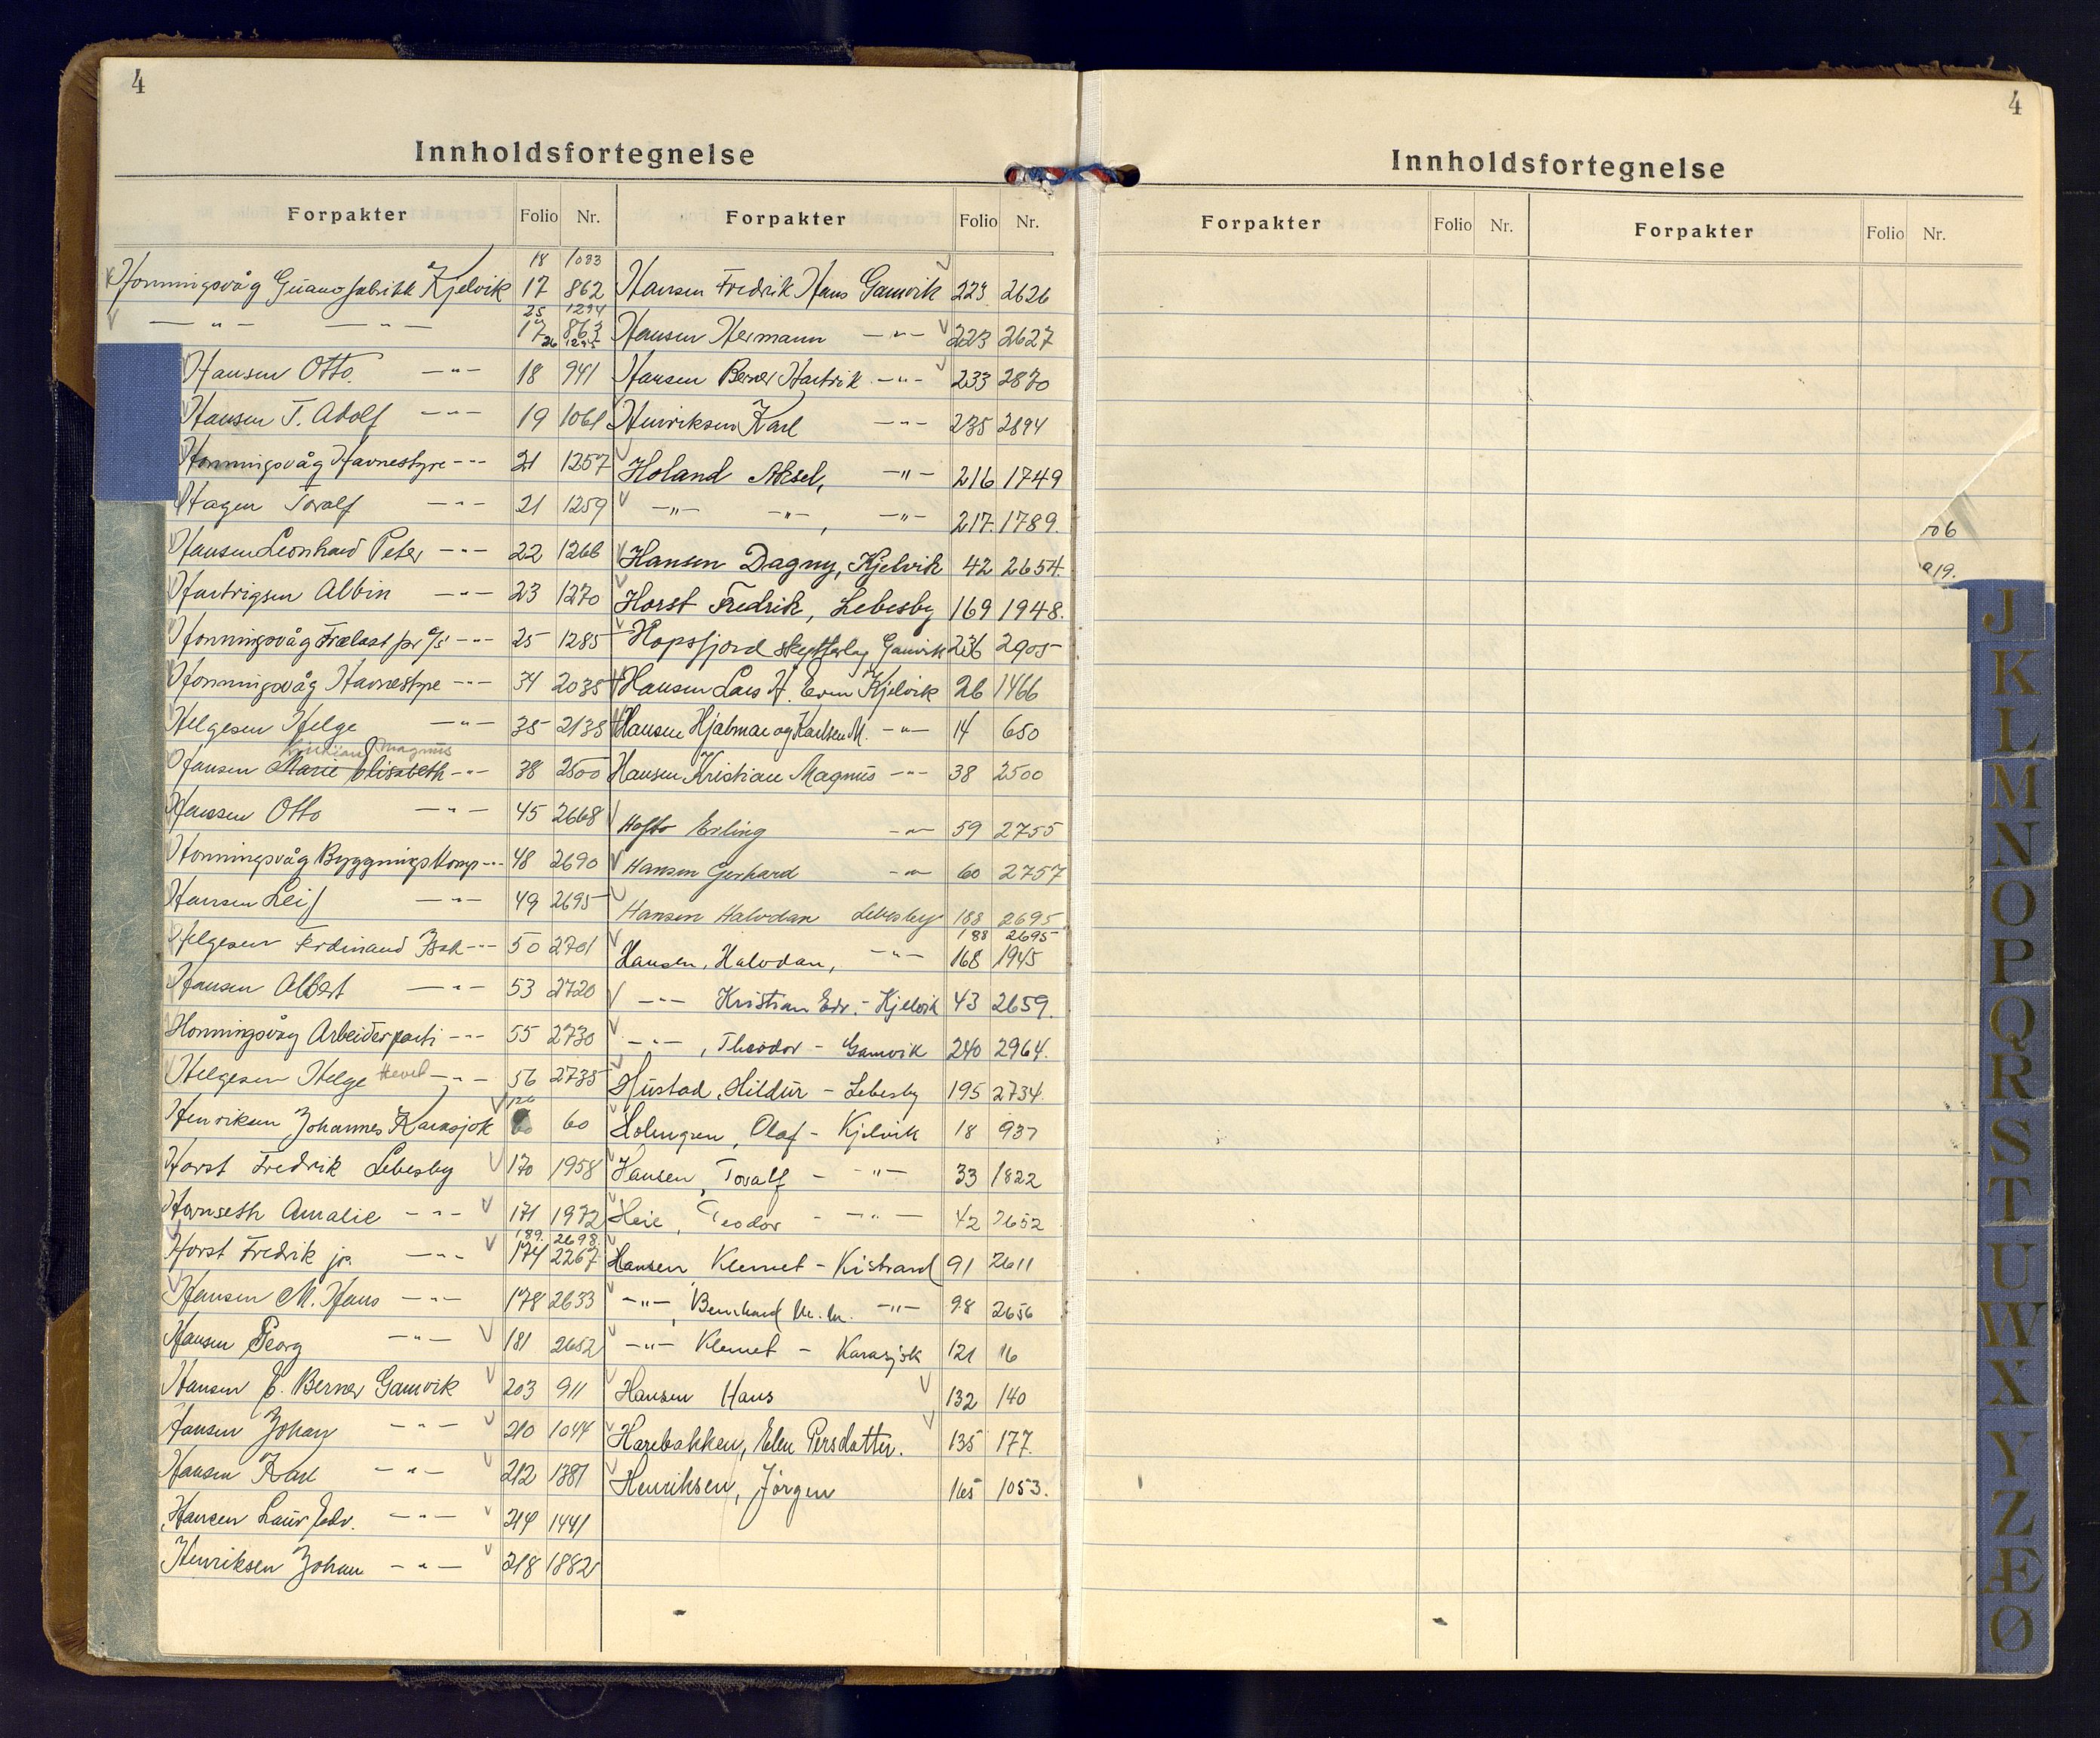 4
Innholdsfortegnelse
Forpakter Folio Nr.
18 1083
Honningsvåg Guanofabrikk Kjelvik 17 862
25 1294
— " — — " — 17 863
26 1295
Hansen Otto — " — 18 941
Hansen T. Adolf — " — 19 1061
Honningsvåg Havnestyre — " — 21 1257
Hagen Toralf — " — 21 1259
Hansen Leonhard Peter — " — 22 1266
Hartvigsen Albin — " — 23 1270
Honningsvåg Trælast pr a/s — " — 25 1285
Honningsvåg Havnestyre — " — 34 2035
Helgesen Helge — " — 35 2135
Kristian Magnus
Hansen Marie Elisabeth — " — 38 2500
Hansen Otto — " — 45 2668
Honningsvåg Bygningskomp — " — 48 2690
Hansen Leif — " — 49 2695
Helgesen Ferdinand Isak — " — 50 2701
Hansen Albert — " — 53 2720
Honningsvåg Arbeiderparti — " — 55 2730
Helgesen Helge — " — 56 2735
126
Henriksen Johannes Karasjok 60
Horst Fredrik Lebesby 170 1958
Harnseth Amalie — " — 171 1972
189. 2698.
Horst Fredrik jr. — " — 174 2267
Hansen M. Hans — " — 178 2633
Hansen Georg — " — 181 2652
Hansen E. Berner Gamvik 203 911
Hansen Johan — " — 210 1044
Hansen Karl — " — 212 1381
Hansen Laur Edv. — " — 214 1441
Henriksen Johan — " — 218 1882
Forpakter Folio Nr.
Hansen Fredrik Hans Gamvik 223 2626
Hansen Hermann — " — 223 2627
Hansen Berner Hartvik — " — 233 2870
Henriksen Karl — " — 235 2894
Holand Aksel, — " — 216 1749
— " — — " —, — " — 217. 1789.
Hansen Dagny, Kjelvik 42 2654.
Horst Fredrik, Lebesby 169 1948.
Hopsfjord skytterlag Gamvik 236 2905
Hansen Lars H. Even Kjelvik 26 1466
Hansen Hjalmar og Karlsen M. — " — 14 650
Hansen Kristian Magnus — " — 38 2500
Hofto Erling — " — 59 2755
Hansen Gerhard — " — 60 2757
Hansen Halvdan Lebesby 188 2695
188 2695
Hansen, Halvdan, — " — 168 1945
— " — Kristian Edv. - Kjelvik 43 2659.
— " —, Theodor - Gamvik 240 2964.
Hustad, Hildur - Lebesby 195 2734.
Holmgren, Olaf - Kjelvik 18 937
Hansen, Toralf - — " — 33 1822
Heie, Teodor - — " — 42 2652
Hansen Klemet - Kistrand 91 2611
— " —, Bernhard M. M. — " — 98 2656
— " — Klemet - Karasjok 121 16
Hansen Hans 132 140
Harebakken, Elen Persdatter. 135 177.
Henriksen, Jörgen 165 1053.
4
Innholdsfortegnelse
Forpakter Folio Nr. Forpakter Folio Nr.
106
919.
J
K
L
M
N
O
P
Q
R
S
T
U
W
X
Y
Z
Æ
Ø